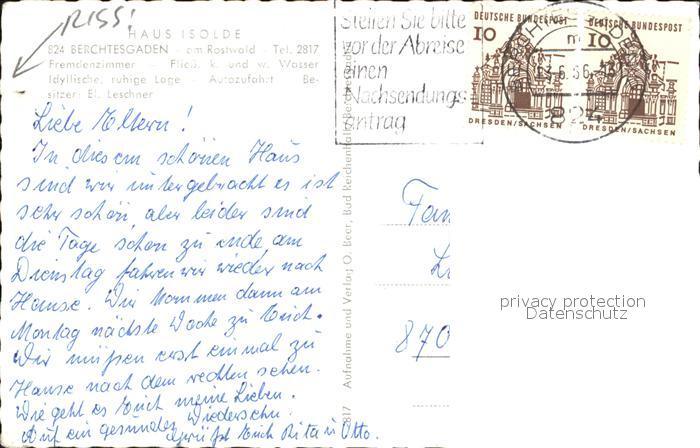 RISS!
HAUS ISOLDE
824 BERCHTESGADEN - am Rostwald - Tel. 2817
Fremdenzimmer - Fließ. k. und w. Wasser
Idyllische, ruhige Lage - Autozufahrt Be-
sitzer: El. Leschner
Liebe Eltern!
In diesem schönen Haus
sind wir untergebracht es ist
sehr schön, aber leider sind
die Tage schon zu ende am
Dienstag fahren wir wieder nach
Hause. Wir kommen dann am
Montag nächste Woche zu Euch.
Wir müßen erst einmal zu
Hause nach dem rechten sehen.
Wie geht es Euch meine Lieben.
Auf ein gesundes Wiedersehn
grüßt Euch Rita u. Otto.
817 Aufnahme und Verlag O. Beer, Bad Reichenhall/Berchtesgaden
Stellen Sie bitte
vor der Abreise
einen
Nachsendungs-
antrag
DEUTSCHE BUNDESPOST
10
DRESDEN/SACHSEN
DEUTSCHE BUNDESPOST
10
DRESDEN/SACHSEN
BERCHTESGADEN
m
824
Fam
870
privacy protection
Datenschutz